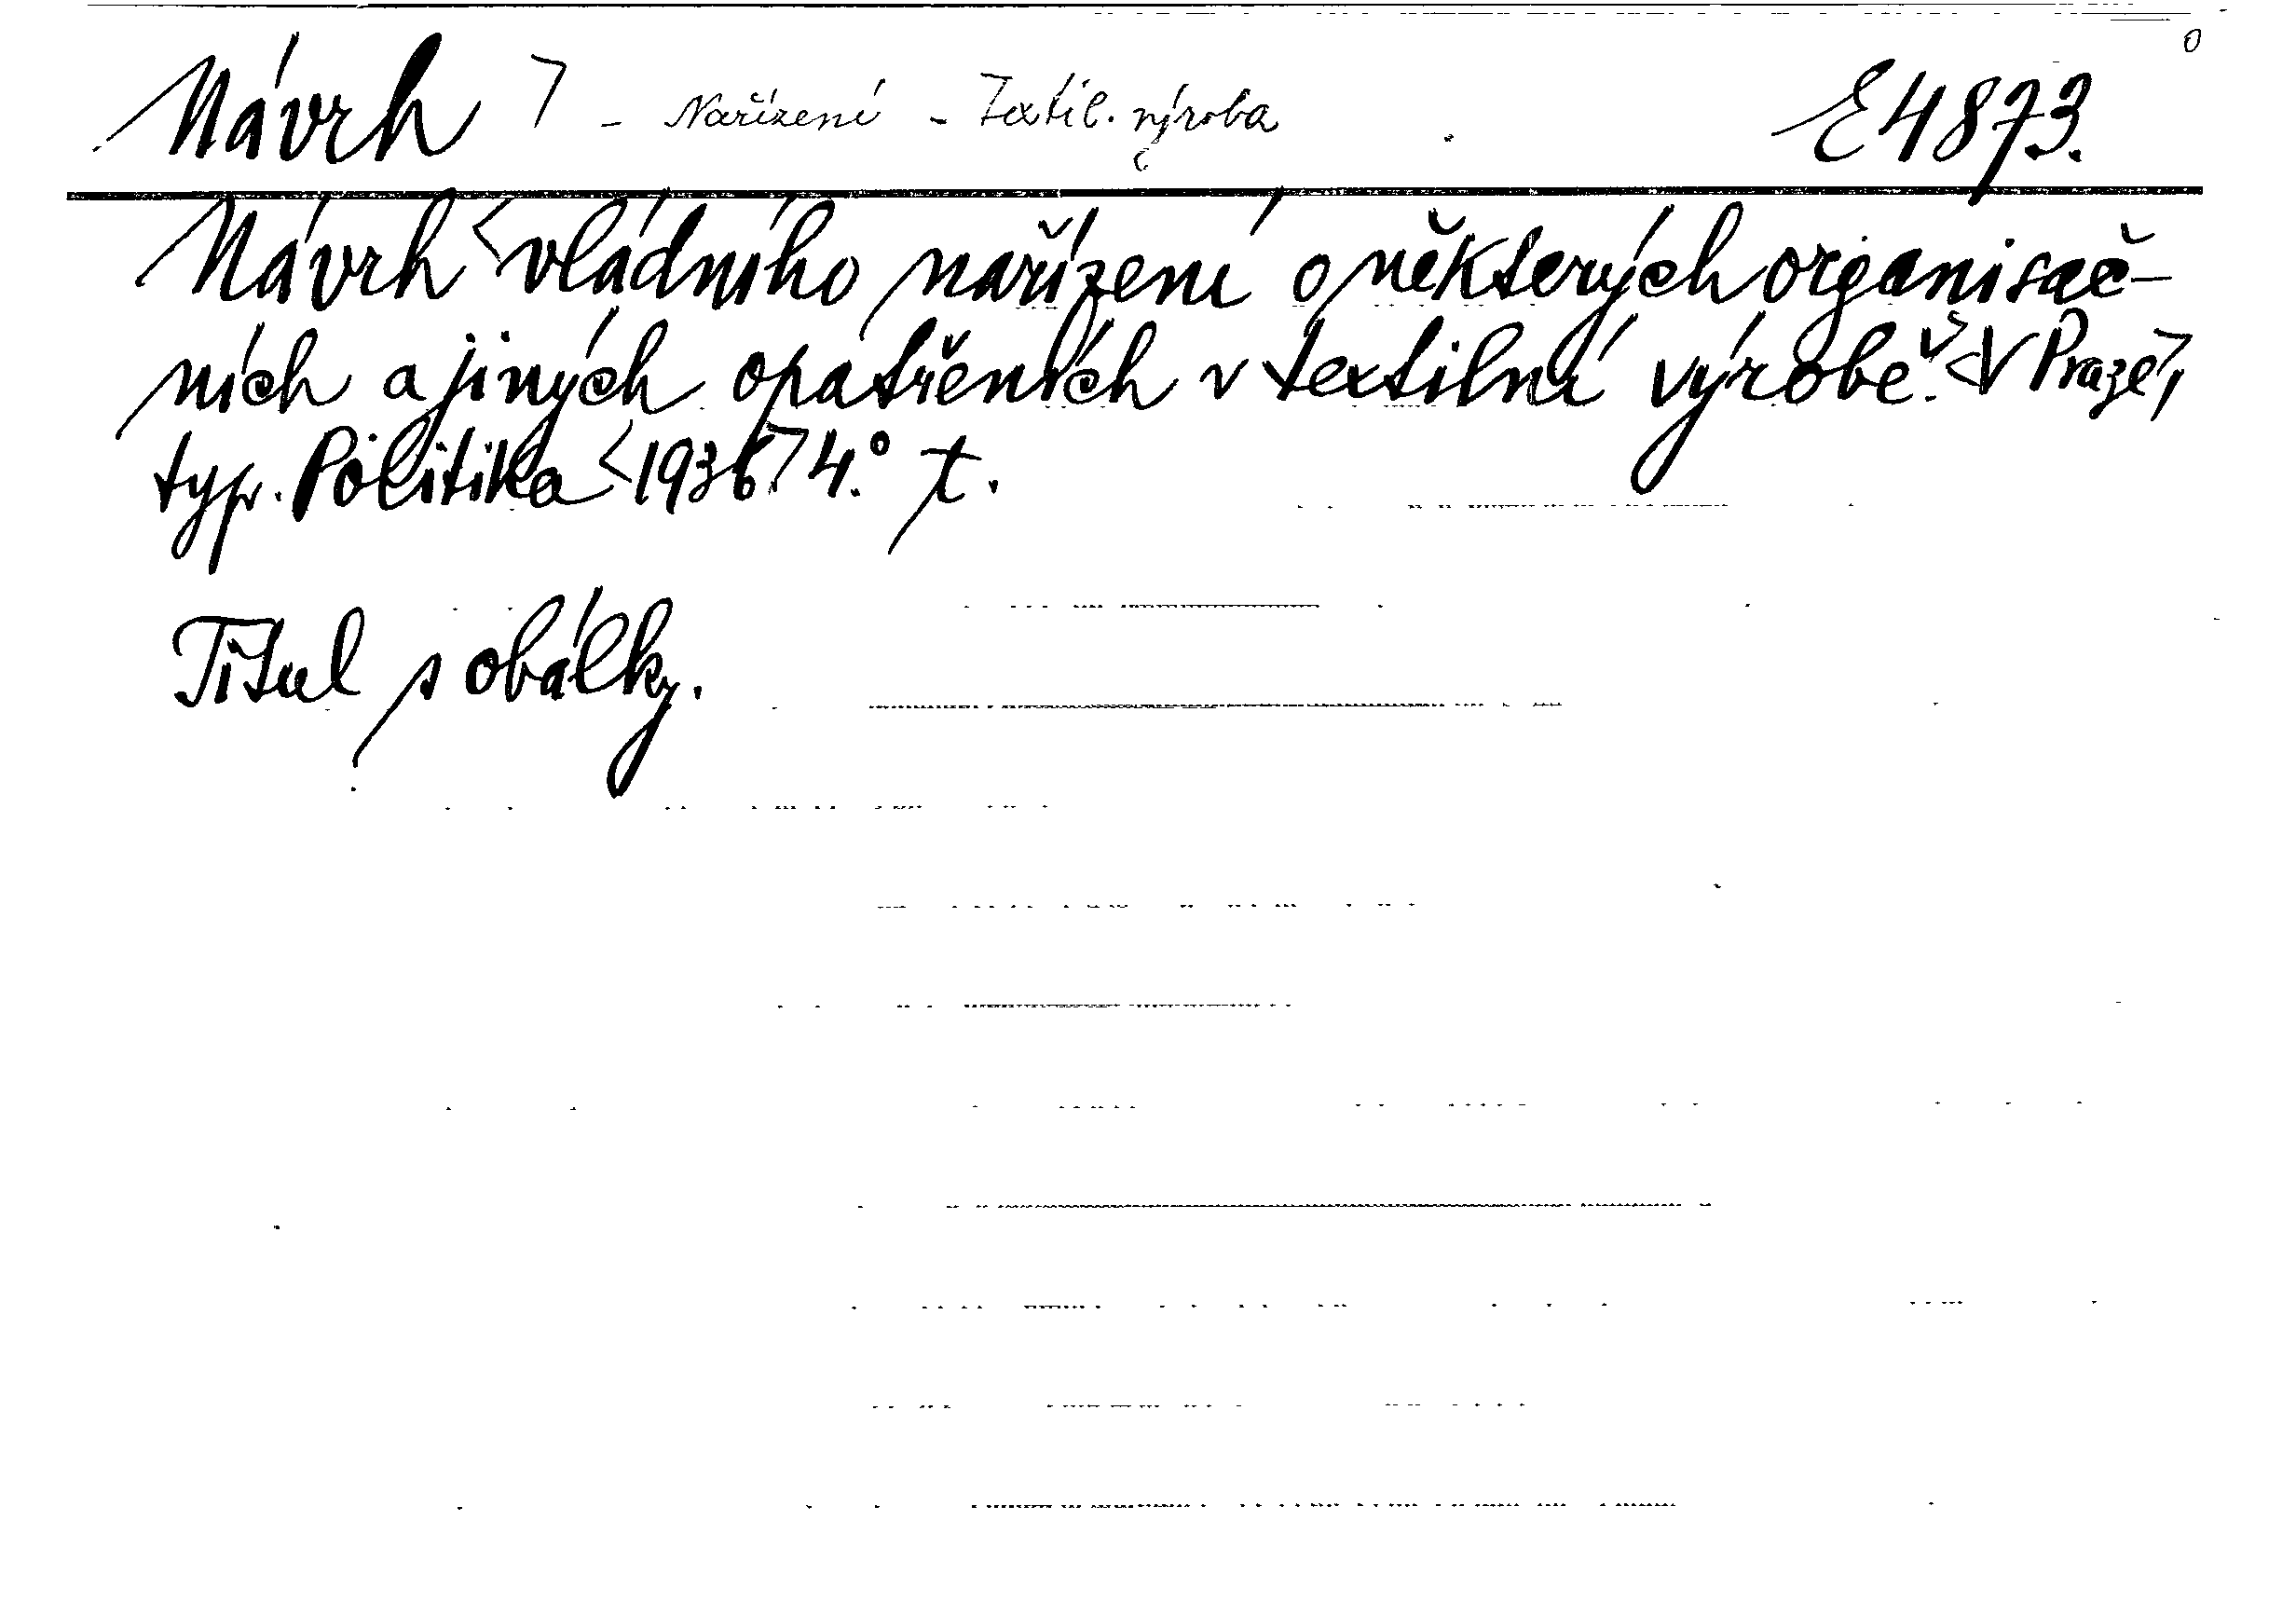 Návrh > - Nařízení - Textil. výroba E 4873.
Návrh < vládního nařízení o některých organisač-
ních a jiných opatřeních v textilní výrobě. <V Praze>,
typ. Politika <1936> 4.° t.
Titul s obálky.